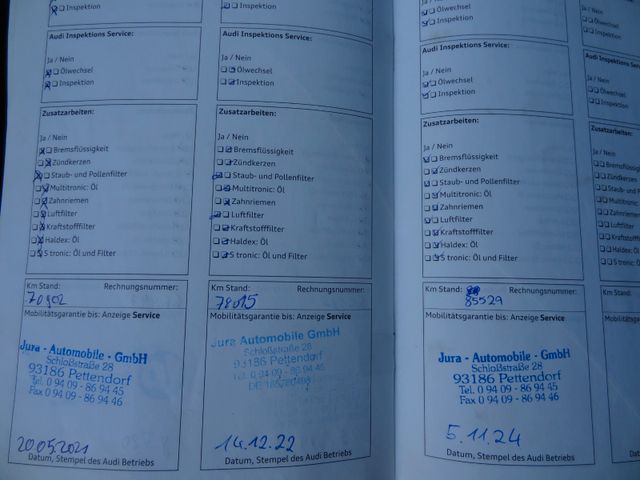 Inspektion
Audi Inspektions Service:
Ja / Nein
Ölwechsel
Inspektion
Zusatzarbeiten:
Ja / Nein
Bremsflüssigkeit
Zündkerzen
Staub- und Pollenfilter
Multitronic: Öl
Zahnriemen
Luftfilter
Kraftstofffilter
Haldex: Öl
S tronic: Öl und Filter
Km Stand: Rechnungsnummer:
70902
Mobilitätsgarantie bis: Anzeige Service
Jura - Automobile - GmbH
Schloßstraße 28
93186 Pettendorf
Tel. 0 94 09 - 86 94 45
Fax 0 94 09 - 86 94 46
20.05.2021
Datum, Stempel des Audi Betriebs
Inspektion
Audi Inspektions Service:
Ja / Nein
Ölwechsel
Inspektion
Zusatzarbeiten:
Ja / Nein
Bremsflüssigkeit
Zündkerzen
Staub- und Pollenfilter
Multitronic: Öl
Zahnriemen
Luftfilter
Kraftstofffilter
Haldex: Öl
S tronic: Öl und Filter
Km Stand: Rechnungsnummer:
78015
Mobilitätsgarantie bis: Anzeige Service
Jura Automobile GmbH
Schloßstraße 28
93186 Pettendorf
Tel. 0 94 09 - 86 94 45
14.12.22
Datum, Stempel des Audi Betriebs
Ölwechsel
Inspektion
Audi Inspektions Service:
Ja / Nein
Ölwechsel
Inspektion
Zusatzarbeiten:
Ja / Nein
Bremsflüssigkeit
Zündkerzen
Staub- und Pollenfilter
Multitronic: Öl
Zahnriemen
Luftfilter
Kraftstofffilter
Haldex: Öl
S tronic: Öl und Filter
Km Stand: Rechnungsnummer:
85529
Mobilitätsgarantie bis: Anzeige Service
Jura - Automobile - GmbH
Schloßstraße 28
93186 Pettendorf
Tel. 0 94 09 - 86 94 45
Fax 0 94 09 - 86 94 46
5.11.24
Datum, Stempel des Audi Betriebs
Ja / Nein
Ölwechsel
Inspektion
Audi Inspektions
Ja / Nein
Ölwechsel
Inspektion
Zusatzarbeiten:
Ja / Nein
Bremsflüssig
Zündkerzen
Staub- und P
Multitronic:
Zahnriemen
Luftfilter
Kraftstofffi
Haldex: Öl
S tronic: Öl
Km Stand:
Mobilitätsga
Datum